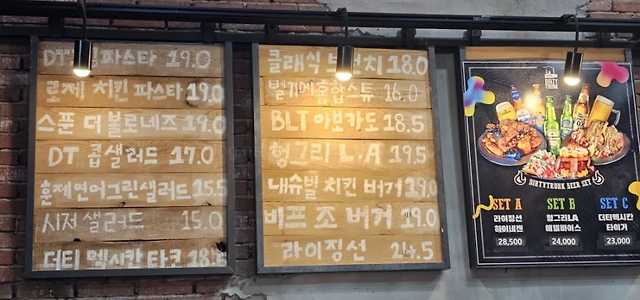 DT 파스타 19.0
로제 치킨 파스타 19.0
스푼 더 블로네즈 19.0
DT 콥샐러드 17.0
훈제연어그린샐러드 15.5
시저 샐러드 15.0
더티 멕시칸 타코 18.5
클래식 브런치 18.0
벨기에홍합스튜 16.0
BLT 아보카도 18.5
헝그리 L.A 19.5
내슈빌 치킨 버거 19.0
비프 조 버거 19.0
라이징선 24.5
DIRTYTRUNK BEER SET
SET A
라이징선
하이네켄
28,500
SET B
헝그리LA
애빌바이스
24,000
SET C
더티멕시칸
타이거
23,000